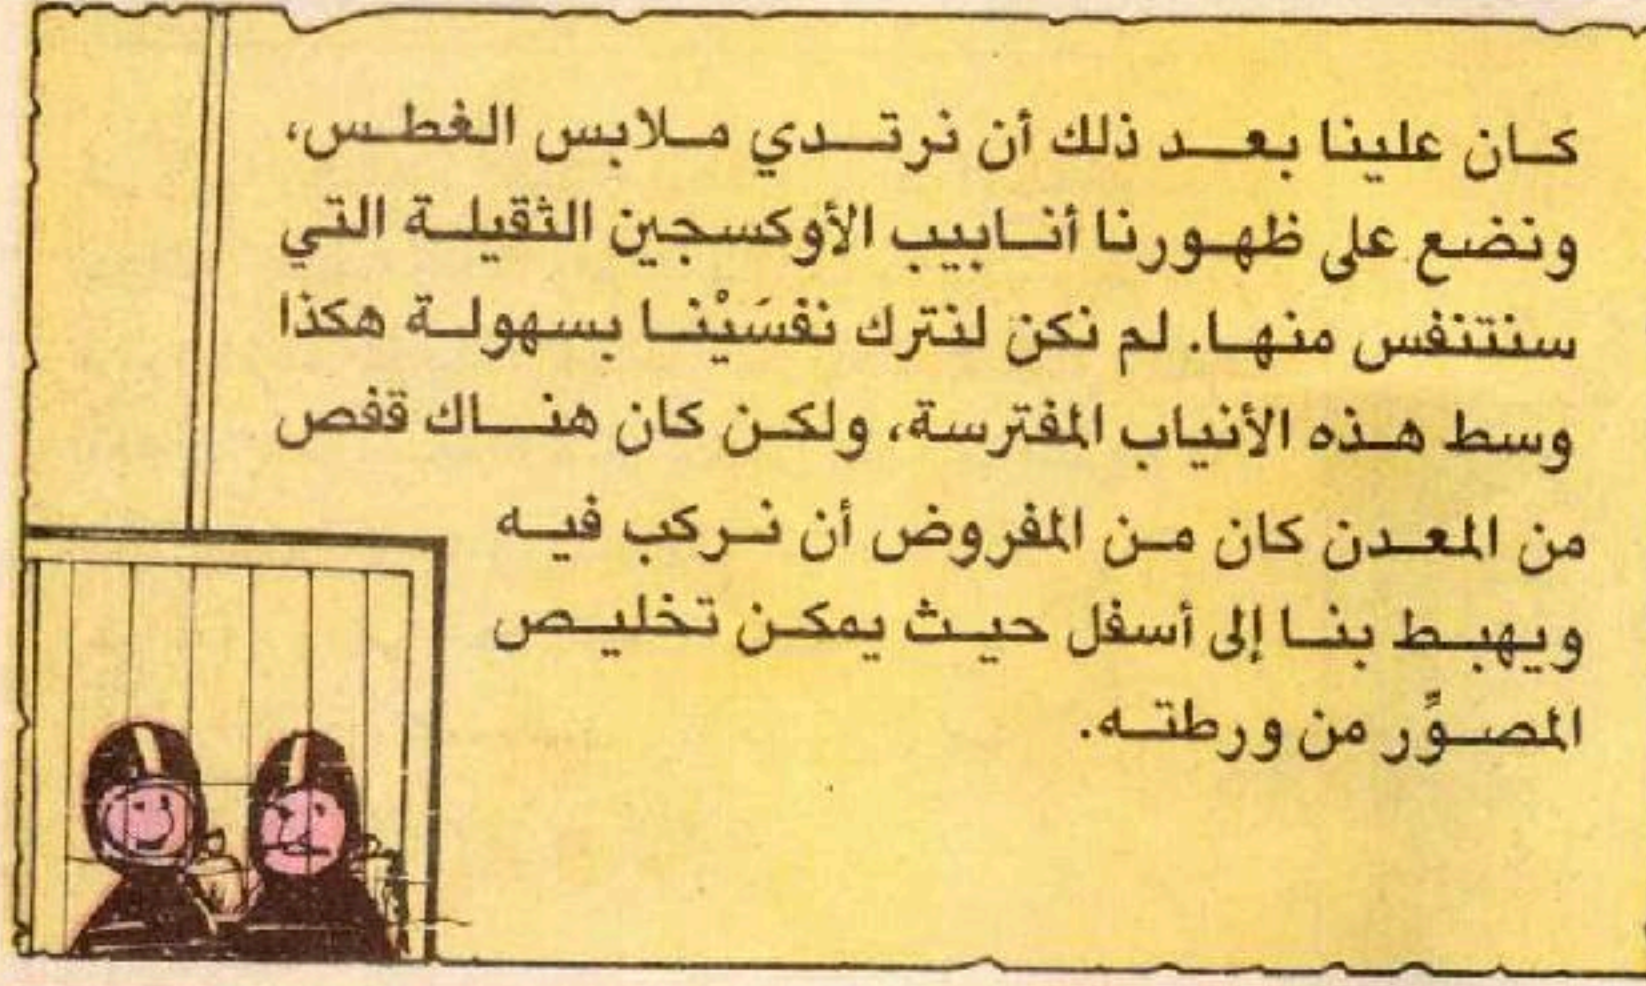 كان علينا بعد ذلك أن نرتدي ملابس الغطس،
ونضع على ظهورنا أنابيب الأوكسجين الثقيلة التي
سنتنفس منها. لم نكن لنترك نفسَيْنا بسهولة هكذا
وسط هذه الأنياب المفترسة، ولكن كان هناك قفص
من المعدن كان من المفروض أن نركب فيه
ويهبط بنا إلى أسفل حيث يمكن تخليص
المصوِّر من ورطته.